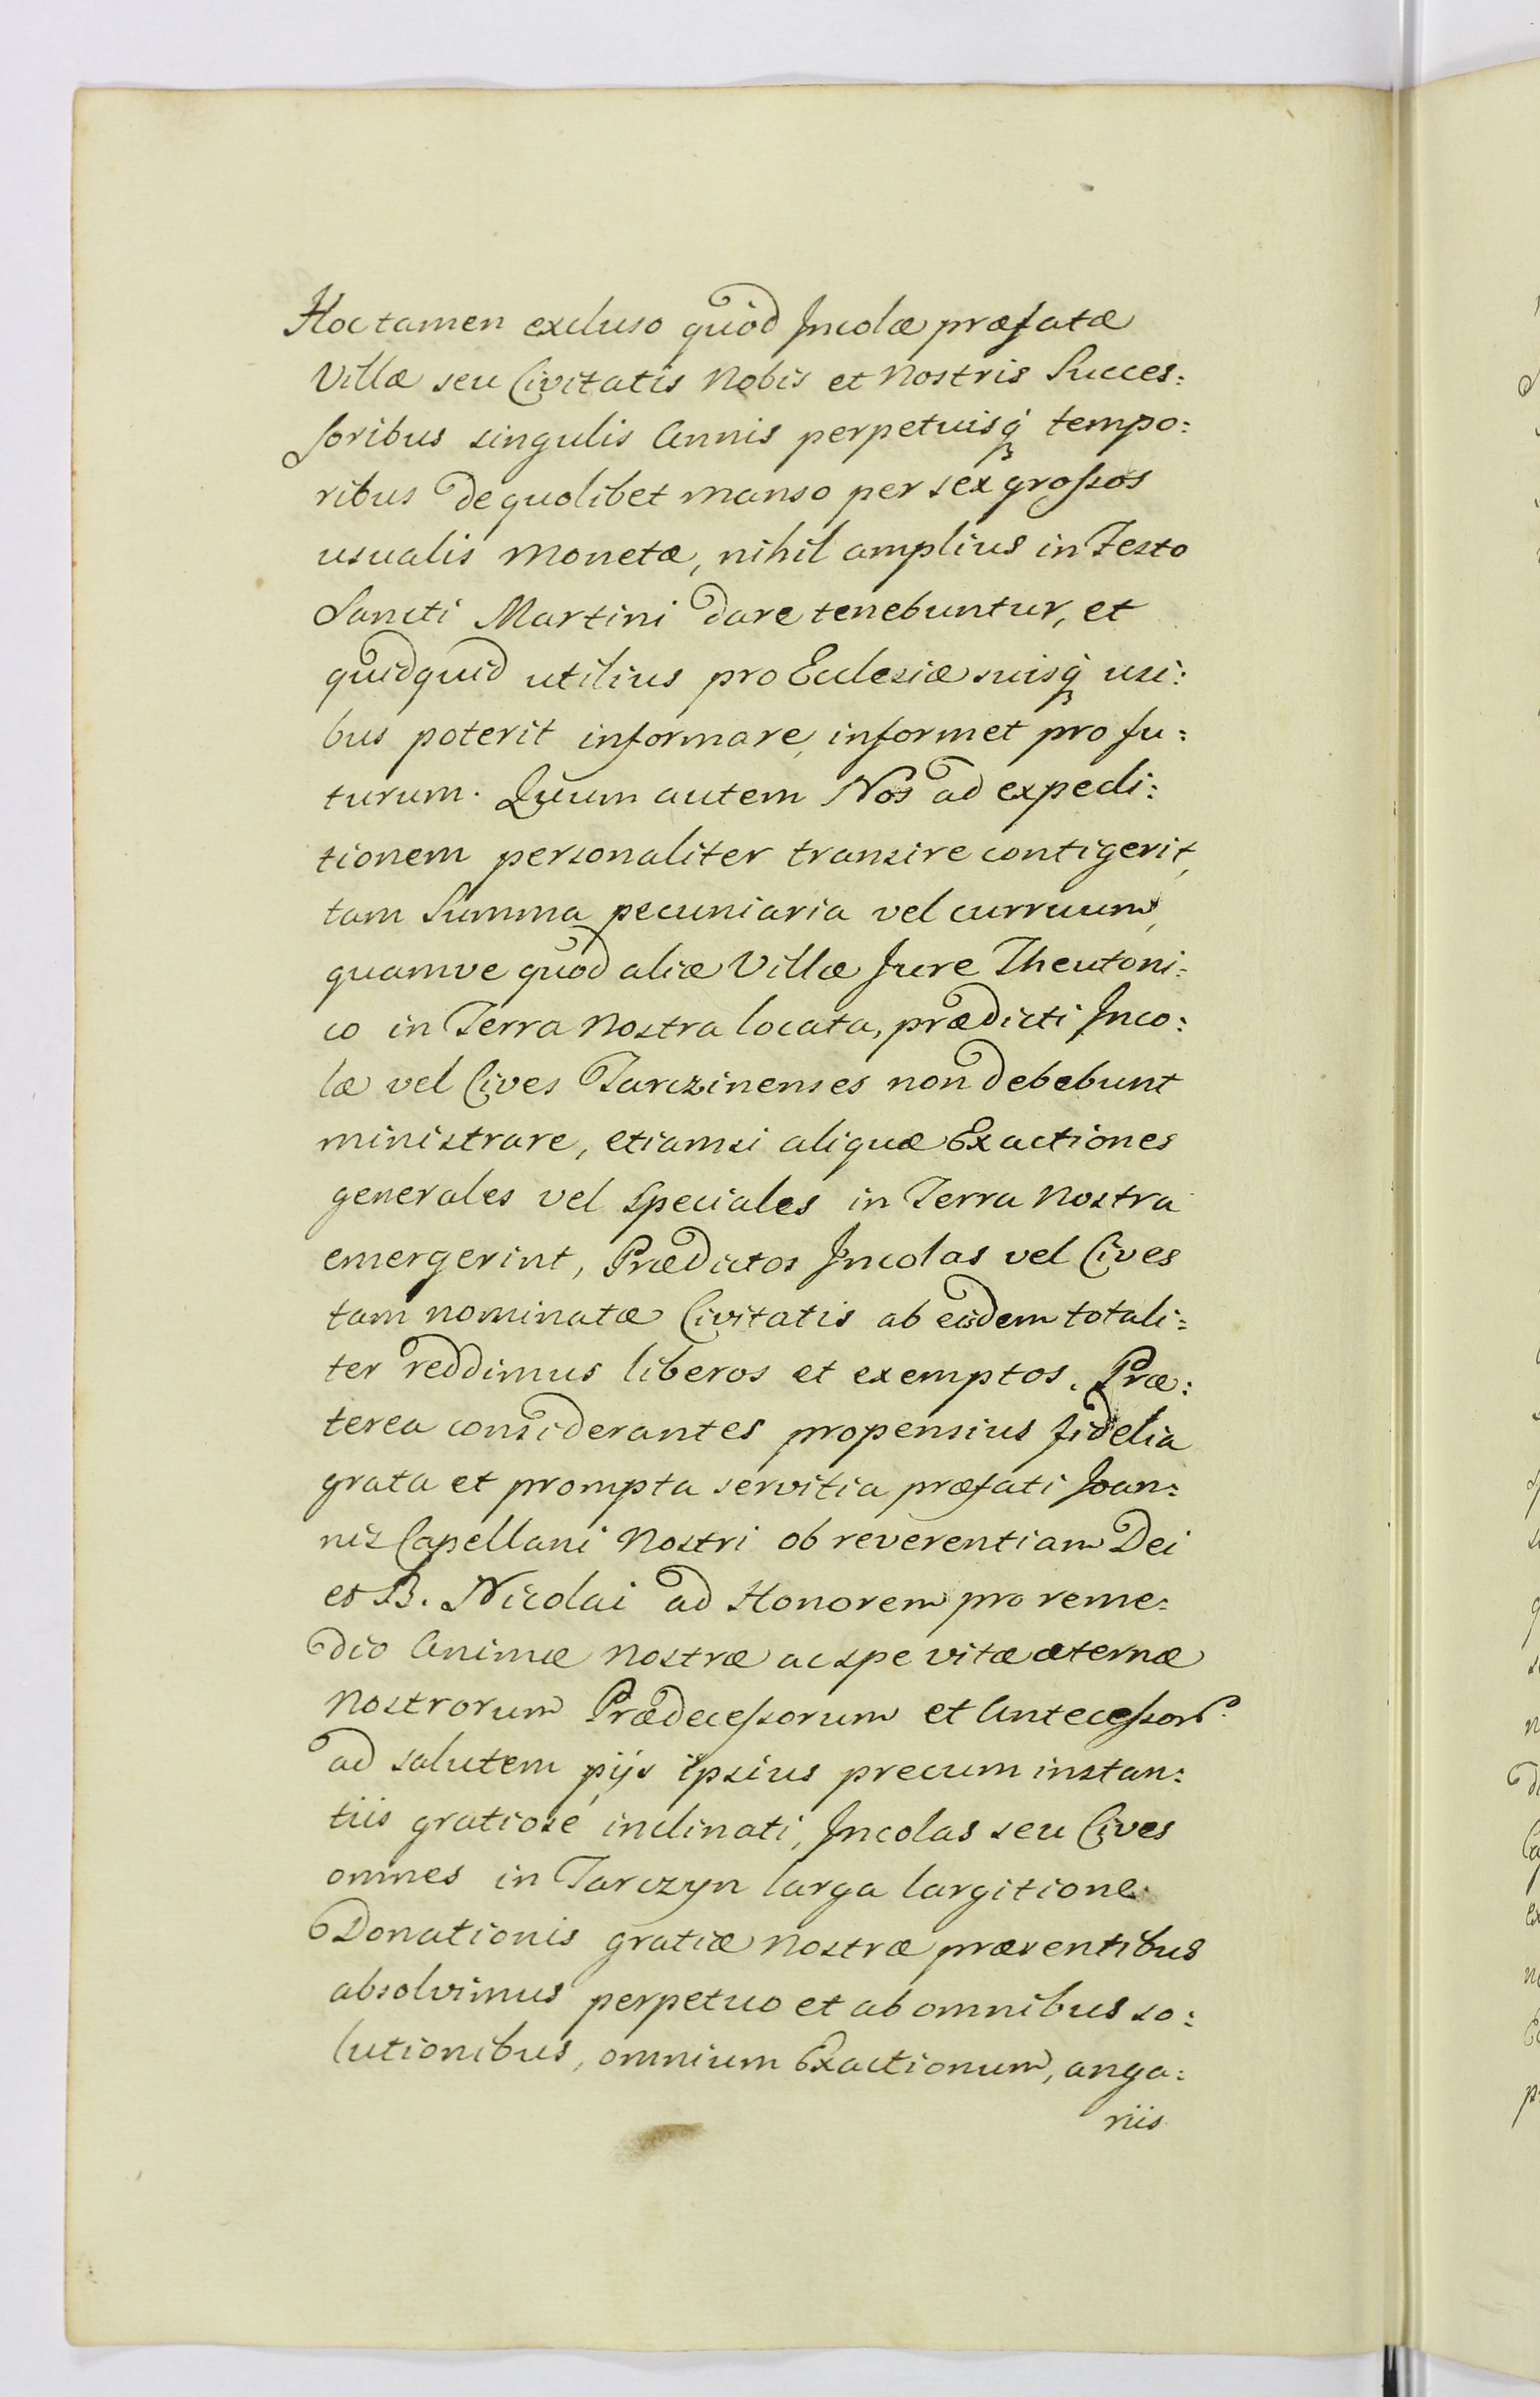 Hoc tamen excluso quod Incolæ præfatæ
Villæ seu Civitatis Nobis et Nostris Succes:
soribus singulis Annis perpetuisq́ tempo:
ribus de quolibet manso per sex grossos
usualis Monetæ, nihil amplius in Festo
Sancti Martini dare tenebuntur, et
quidquid utilius pro Ecclesiæ suisq́ usi:
bus poterit informare, informet pro fu:
turum. Quum autem Nos ad expedi:
tionem personaliter transire contigerit,
tam Summa pecuniaria vel curruum,
quamve quod aliæ Villæ Jure Theutoni:
co in Terra Nostra locata, prædicti Inco:
læ vel Cives Tarczinenses non debebunt
ministrare, etiamsi aliquæ Exactiones
generales vel speciales in Terra Nostra
emergerint, Prædictos Incolas vel Cives
tam nominatæ Civitatis ab eisdem totali:
ter reddimus liberos et exemptos. Præ:
terea considerantes propensius fidelia
grata et prompta servitia præfati Joan:
nis Capellani Nostri ob reverentiam Dei
et B. Nicolai ad Honorem pro reme:
dio Animæ Nostræ ac spe vitæ æternæ
Nostrorum Prædecessorum et Antecessor.
ad salutem pijs ipsius precum instan:
tiis gratiosè inclinati, Incolas seu Cives
omnes in Tarczyn larga largitione
Donationis gratiæ Nostræ præsentibus
absolvimus perpetuo et ab omnibus so:
lutionibus, omnium Exactionum, anga:
riis